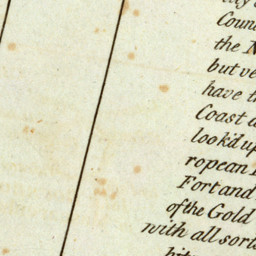 Coun
the N
but ve
have t
Coast a
look'd up
ropean
Fort and
of the Gold
with all sort